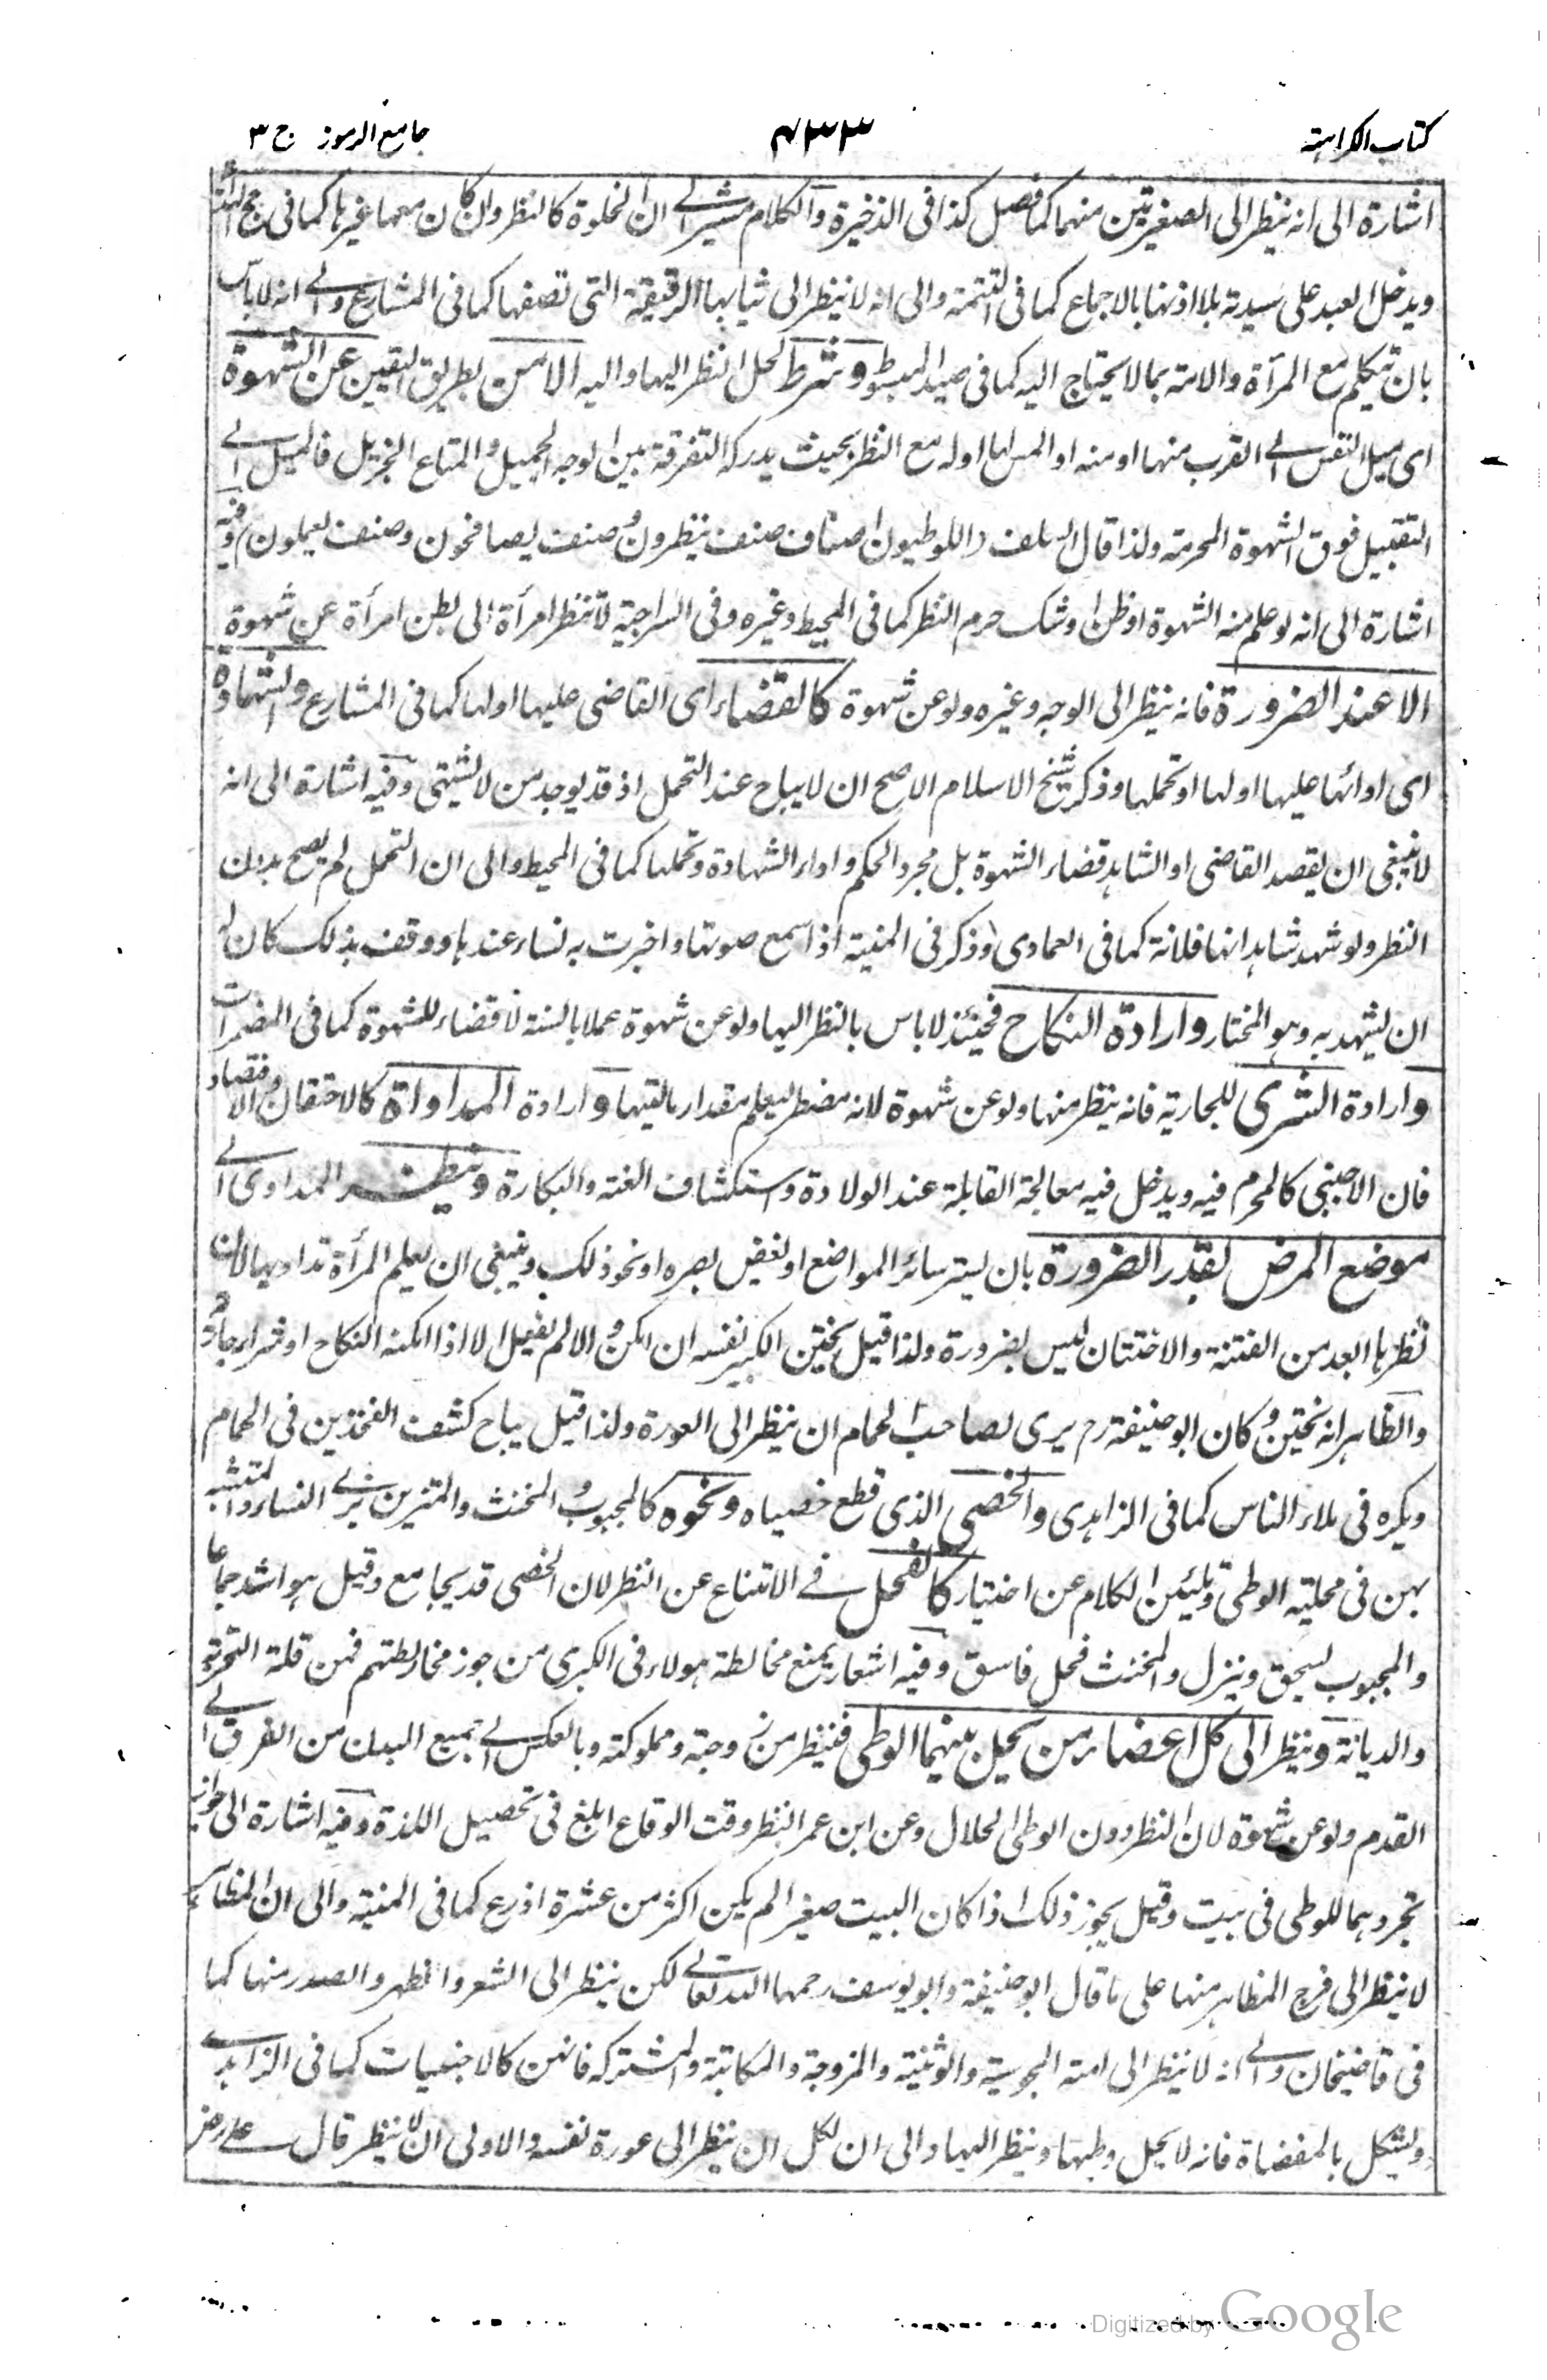 كتاب الكراهية ٧٣٣ جامع الرموز ج ٣
اشارة الى انه ينظر الى الصغيرتين منهما كما فصل كذا فى الذخيرة والكلام مشير الى ان الخلوة كالنظر وان كان معها غيرها كما فى
ويدخل العبد على سيدته بلا اذنها بالاجماع كما فى التتمة والى انه لا ينظر الى ثيابها الرقيقة التى تصفها كما فى المشارع والى انه لا باس
بان يتكلم مع المرأة والامة بما لا يحتاج اليه كما فى صيد المبسوط وشرط لحل النظر اليها واليه الامن بطريق اليقين عن الشهوة
اى ميل النفس الى القرب منها او منه او المس لها او له مع النظر بحيث يدرك التفرقة بين الوجه الجميل والمتاع الجزيل فالميل الى
التقبيل فوق الشهوة المحرمة ولذا قال السلف اللوطيون اصناف صنف ينظرون وصنف يصافحون وصنف يعملون وفيه
اشارة الى انه لو علم منه الشهوة او ظن او شك حرم النظر كما فى المحيط وغيره وفى السراجية لا تنظر امرأة الى بطن امرأة عن شهوة
الا عند الضرورة فانه ينظر الى الوجه وغيره ولو عن شهوة كالقضاء اى القاضى عليها او لها كما فى المشارع والشهادة
اى ادائها عليها او لها او تحملها وذكر شيخ الاسلام الاصح ان لا يباح عند التحمل اذ قد يوجد من لا يشتهى وفيه اشارة الى انه
لا ينبغى ان يقصد القاضى او الشاهد قضاء الشهوة بل مجرد الحكم واداء الشهادة وتحملها كما فى المحيط والى ان التحمل لم يصح بدون
النظر ولو شهد شاهد انها فلانة كما فى العمادى وذكر فى المنية اذا سمع صوتها واخبرت به نساء عندها ووقف بذلك كان له
ان يشهد به وهو المختار وارادة النكاح فحينئذ لا باس بالنظر اليها ولو عن شهوة عملا بالسنة لا قضاء للشهوة كما فى المضمرات
وارادة الشرى للجارية فانه ينظر منها ولو عن شهوة لانه مضطر ليعلم مقدار ماليتها وارادة المداواة كالاحتقان والافتصاد
فان الاجنبى كالمحرم فيه ويدخل فيه معالجة القابلة عند الولادة واستكشاف العنة والبكارة وينظر المداوى الى
موضع المرض بقدر الضرورة بان يستر سائر المواضع او يغض بصره او نحو ذلك وينبغى ان يعلم المرأة تداويها لان
نظرها ابعد من الفتنة والاختتان ليس بضرورة ولذا قيل يختتن الكبير نفسه ان امكن والا لم يفعل الا اذا امكنه النكاح او شراء جارية
والظاهر انه يختتن وكان ابو حنيفة رح يرى لصاحب الحمام ان ينظر الى العورة ولذا قيل يباح كشف الفخذين فى الحمام
ويكره فى ملاء الناس كما فى الزاهدى والخصى الذى قطع خصياه ونحوه كالمجبوب والمخنث والمتزين بزى النساء والمتشبه
بهن فى محلية الوطى وتليين الكلام عن اختيار كالفحل فى الامتناع عن النظر لان الخصى قد يجامع وقيل هو اشد جماعا
والمجبوب يسحق وينزل والمخنث فحل فاسق وفيه اشعار بمنع مخالطة هولاء فى الكبرى من جوز مخالطتهم فمن قلة التجربة
والديانة وينظر الى كل اعضاء من يحل بينهما الوطى فينظر من زوجته ومملوكته وبالعكس الى جميع البدن من الفرق الى
القدم ولو عن شهوة لان النظر دون الوطى الحلال وعن ابن عمر النظر وقت الوقاع ابلغ فى تحصيل اللذة وفيه اشارة الى جواز
تجردهما للوطى فى بيت وقيل يجوز ذلك اذا كان البيت صغيرا لم يكن اكثر من عشرة اذرع كما فى المنية والى ان المظاهر
لا ينظر الى فرج المظاهر منها على ما قال ابو حنيفة وابو يوسف رحمهما الله تعالى لكن ينظر الى الشعر والظهر والصدر منها كما
فى قاضيخان والى انه لا ينظر الى امته المجوسية والوثنية والمزوجة والمكاتبة والمشتركة فانهن كالاجنبيات كما فى الزاهدى
ويشكل بالمفضاة فانه لا يحل وطيها وينظر اليها والى ان لكل ان ينظر الى عورة نفسه والاولى ان لا ينظر قال على رض
Digitized by Google